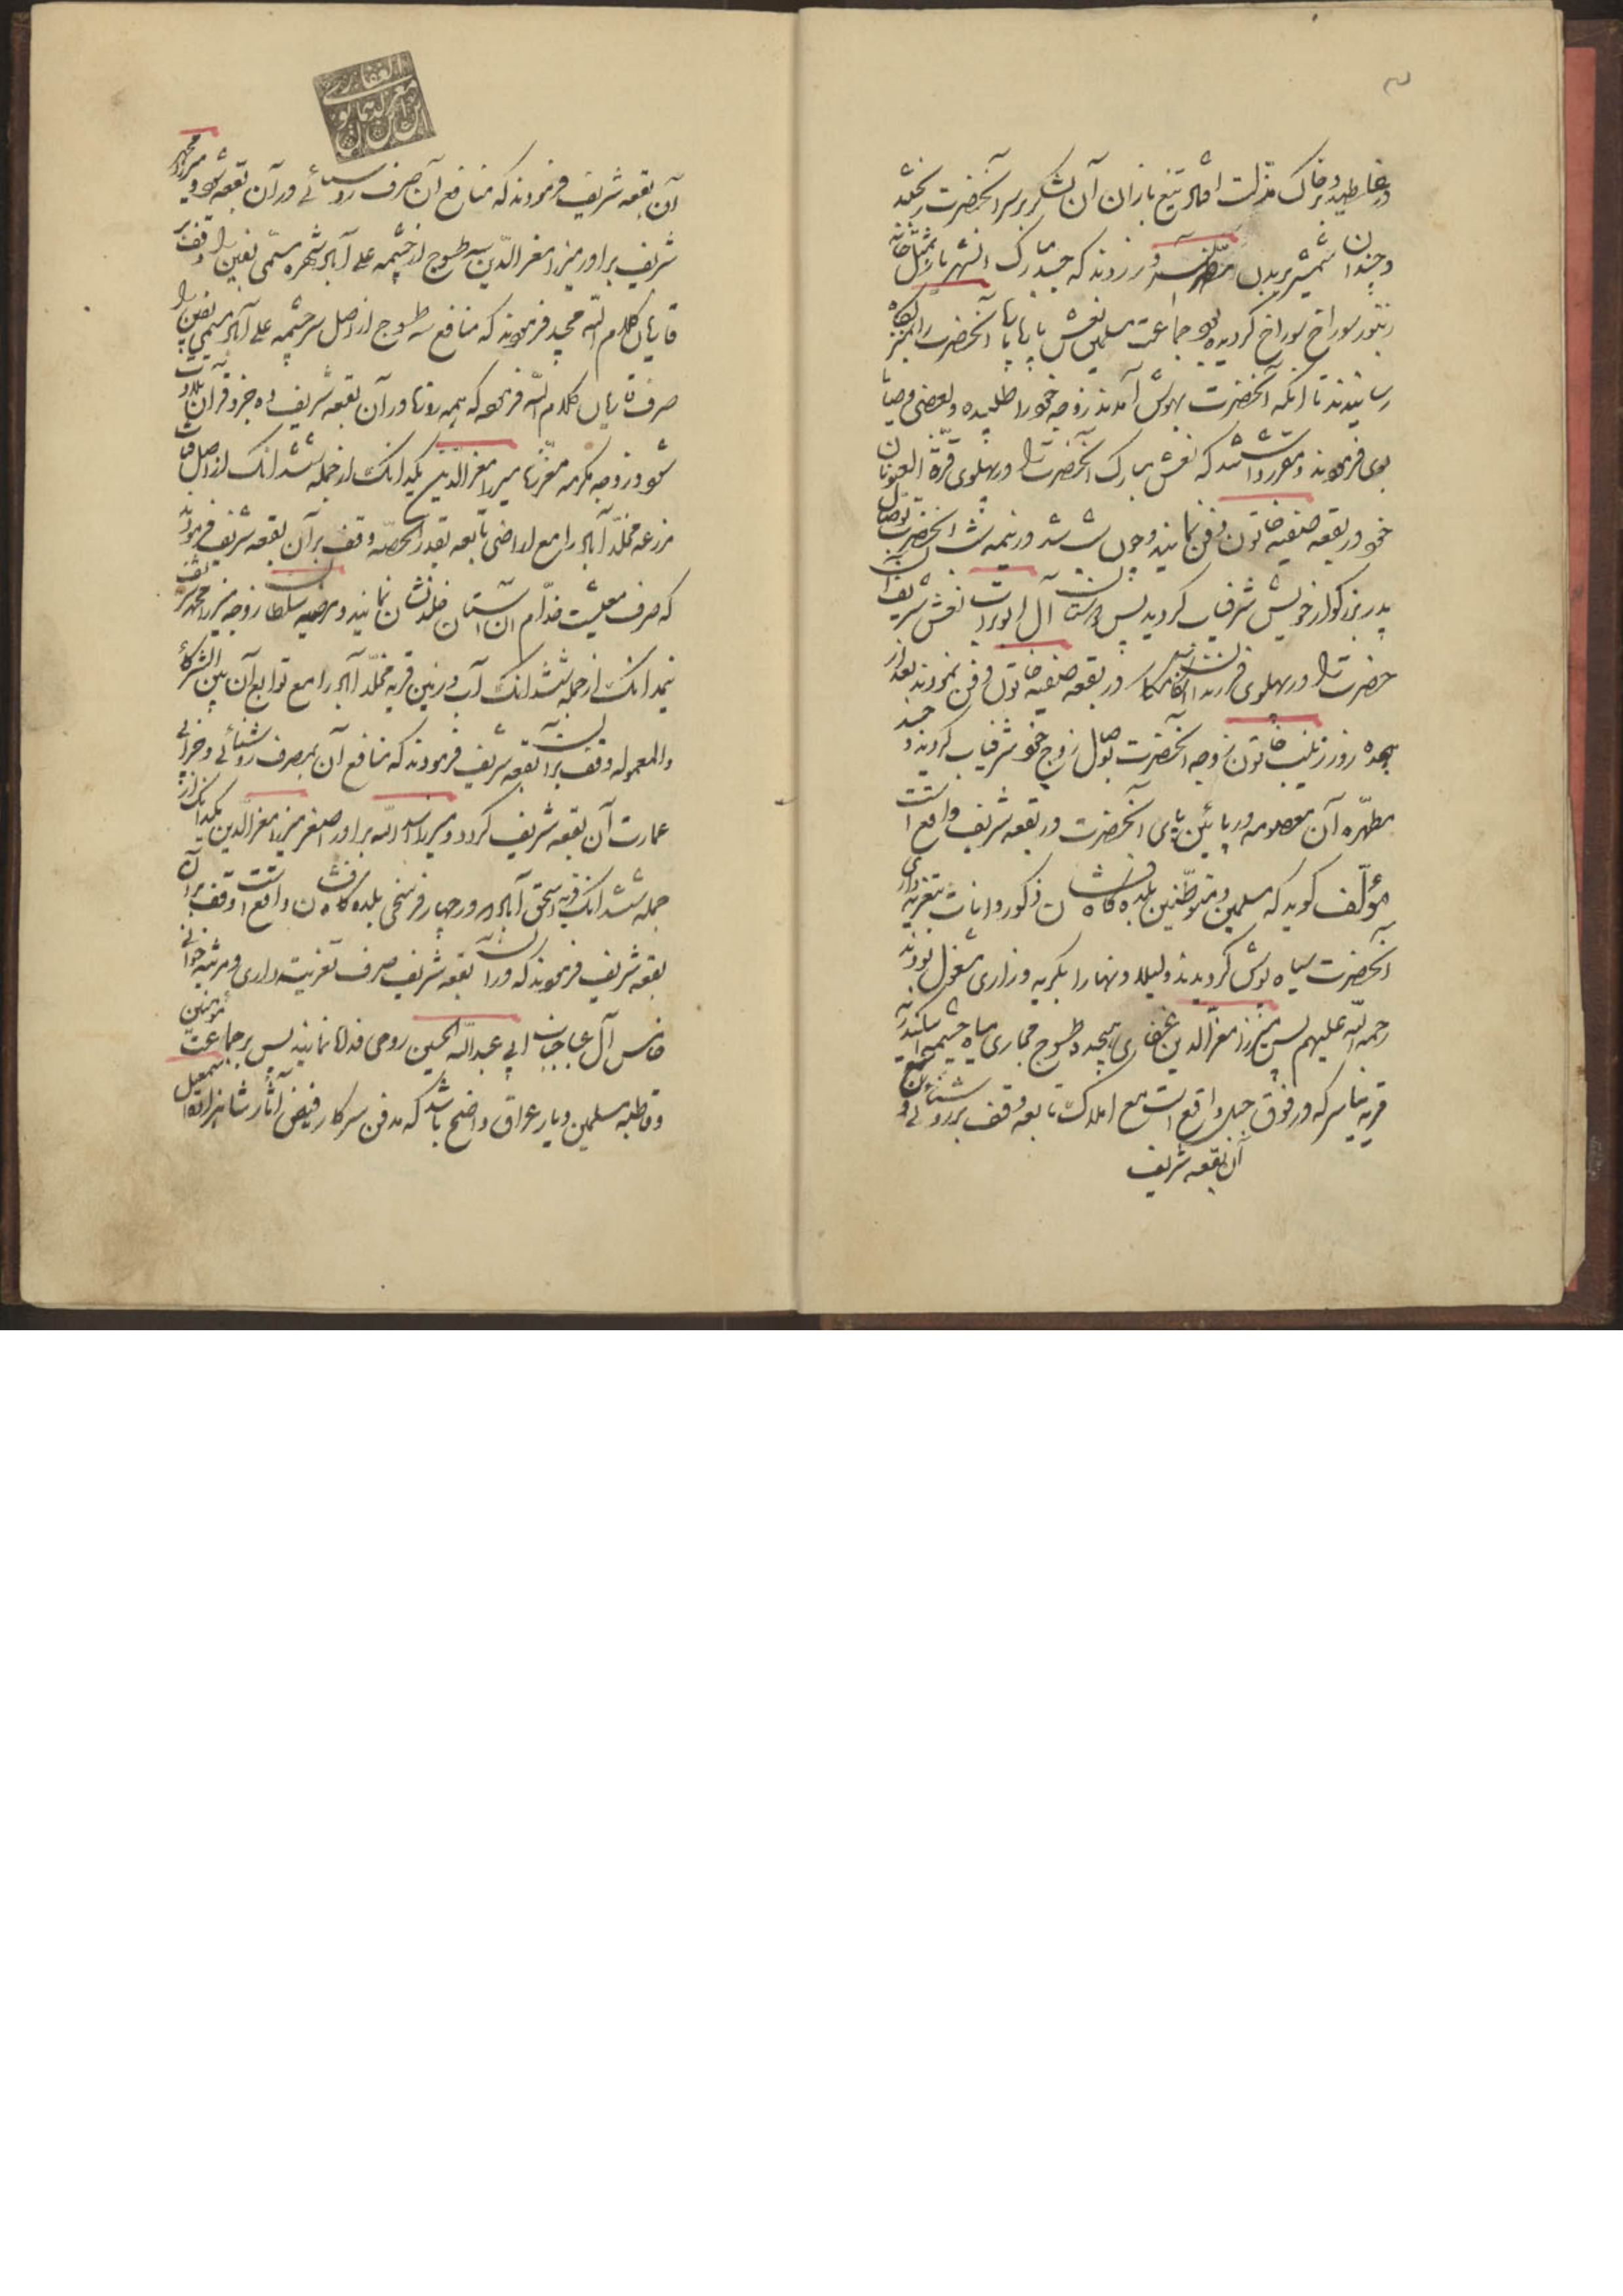 در خاک مذلت افتاد تیغ بازان آن لشکر بر سر آنحضرت ریختند
و چندان شمشیر بر بدن آنسرور زدند که جسد مبارک آنشهریار بمثل خانه
زنبور سوراخ سوراخ گردیده بود جماعت مسلمین نعش آنحضرت را
رسانیدند تا آنکه آنحضرت بهوش آمدند زوجه خود را طلبیده و بعضی وصایا
بوی فرمودند و مقرر داشتند که نعش مبارک آنحضرت را در پهلوی قرة العیونان
خود در بقعه صفیه خاتون دفن نمایند و چون شب شد در نیمه شب آنحضرت بوصال
پدر بزرگوار خویش شرفیاب گردید پس نعش شریف آن
حضرت را در پهلوی فرزندان در بقعه صفیه خاتون دفن نمودند بعد از
هجده روز زینب خاتون زوجه آنحضرت بوصال زوج خود شرفیاب گردیدند و جسد
مطهره آن معصومه در پائین پای آنحضرت در بقعه شریف واقع است
مؤلف گوید که مسلمین و متوطنین بلده کاشان ذکور و اناث بتعزیه داری
آنحضرت سیاه پوش گردیدند و لیلا و نهارا بگریه و زاری مشغول بودند
رحمة الله علیهم پس میرزا معز الدین غفاری هیجده طسوج مجاری میاه چشمه اسکندریه
قریه نیاسر که در فوق جبل واقع است مع املاک تابعه وقف بر روشنائی
آن بقعه شریف
آن بقعه شریف فرمودند که منافع آن صرف روشنائی در آن بقعه شود و میرزا محمد
شریف برادر میرزا معز الدین سه طسوج از چشمه علی آباد شهره مسمی بفین را وقف بر
قاریان کلام الله مجید فرمودند که منافع سه طسوج از اصل سرچشمه علی آباد مسمی بفین را
صرف قاریان کلام الله فرمود که همه روزها در آن بقعه شریف ده جزو قرآن تلاوت
شود و زوجه مکرمه میرزا معز الدین یکدانک از جمله ششدانک از اصل قنات
مزرعه مخلد آباد را مع اراضی تابعه بقدر الحصه وقف بر آن بقعه شریف فرمودند
که صرف معیشت خدام آن آستان نمایند و مرضیه سلطان زوجه میرزا محمد شریف
نیمدانک از جمله ششدانک آب و زمین قریه مخلد آباد را مع توابع آن بین الشرکاء
والمعموله وقف بر آن بقعه شریف فرمودند که منافع آن بمصرف روشنائی و خرابی
عمارت آن بقعه شریف گردد و میرزا اسد الله برادر اصغر میرزا معز الدین یکدانک از
جمله ششدانک قریه اسحق آباد که در چهار فرسخی بلده کاشان واقع است وقف بر آن
بقعه شریف فرمودند که در آن بقعه شریف صرف تعزیت داری و مرثیه خوانی
خامس آل عبا جناب ابی عبدالله الحسین روحی فداه نمایند پس بر جماعت مؤمنین
و قاطبه مسلمین دیار عراق واضح باشد که مدفن سرکار فیض آثار شاهزاده اسمعیل